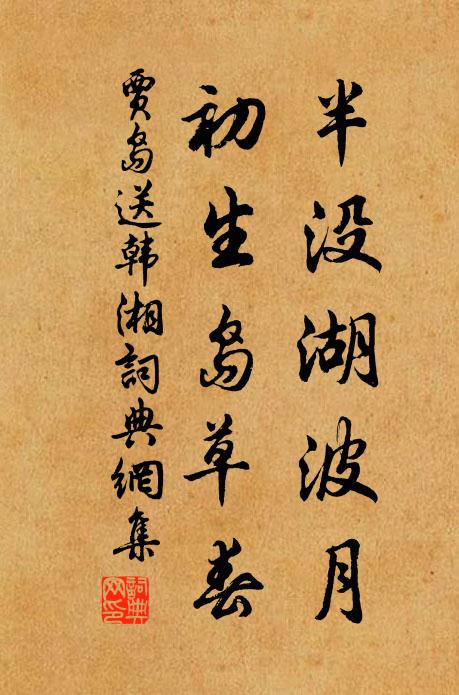 半没湖波月
初生岛草春
贾岛送韩湘詞典網集
詞典网印